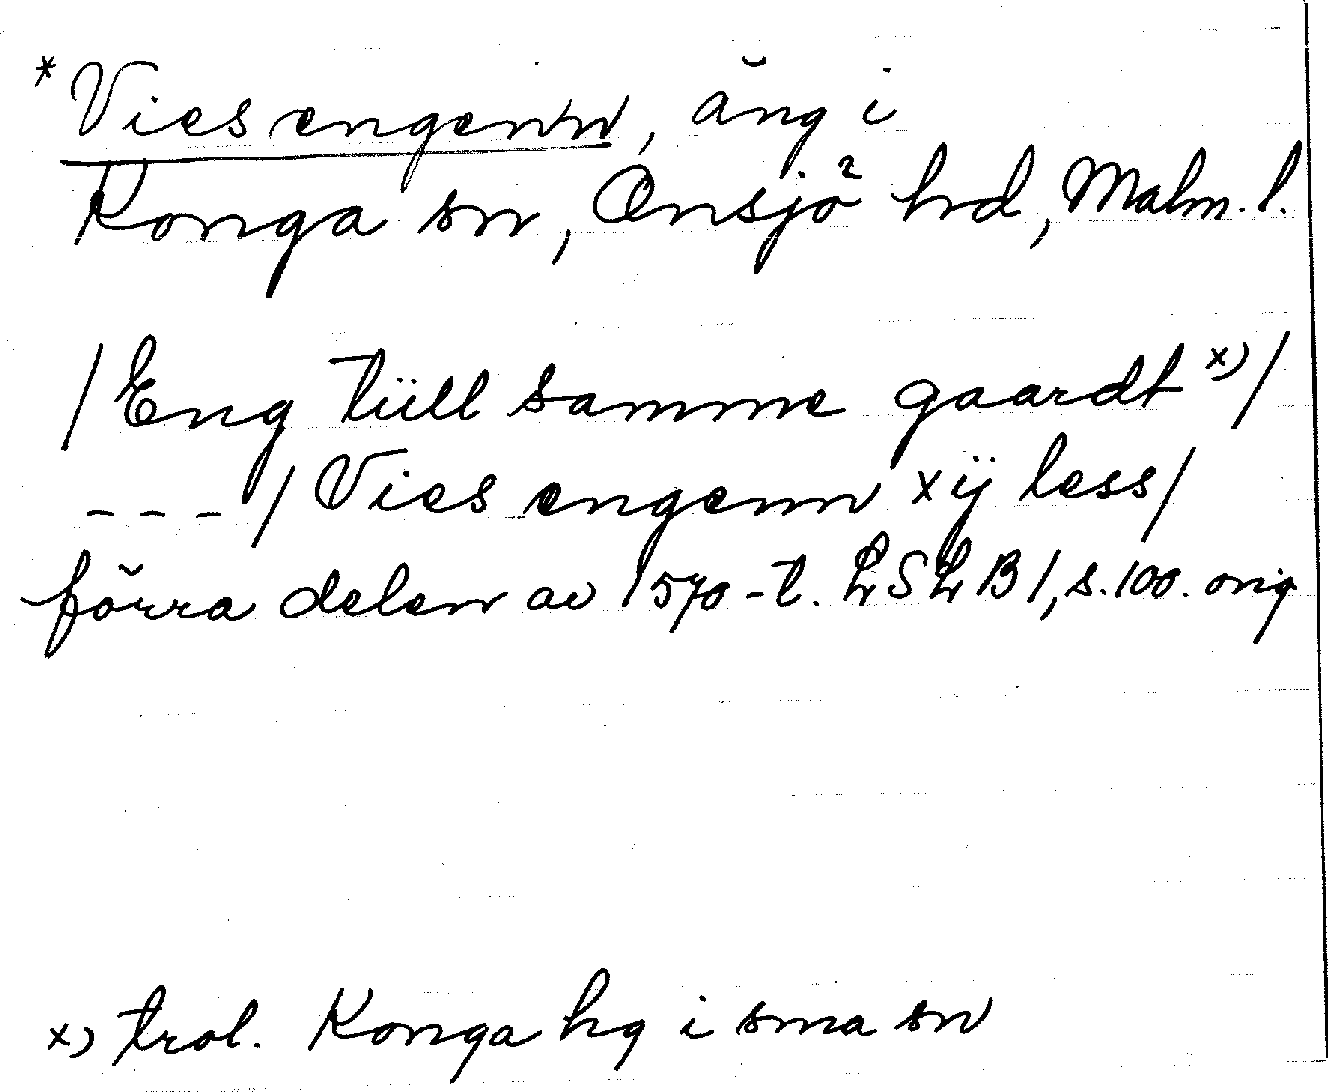 *Vies engenn, äng i
Konga sn, Onsjö hd, Malm. l.
/Eng tüll samme gaardt x)/
--- / Vies engenn xÿ less/
förra delen av 1570-t. LSLB1, s. 100. orig
x) trol. Konga hg i sma sn